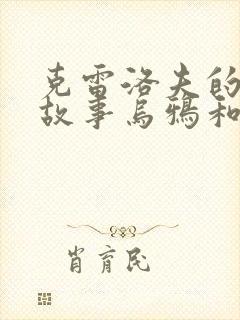 克雷洛夫的
故事乌鸦和
肖育民